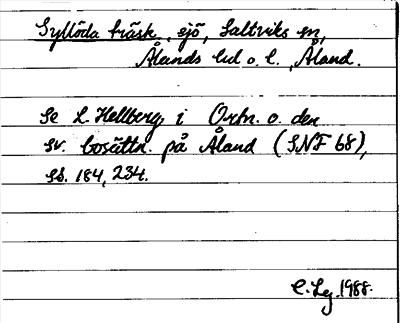 Syllöda träsk, sjö, Saltviks sn,
Ålands hd o. l., Åland.
Se L. Hellberg i Ortn. o. den
sv. bosättn. på Åland (SNF 68),
ss. 184, 234.
C. Lg. 1988.